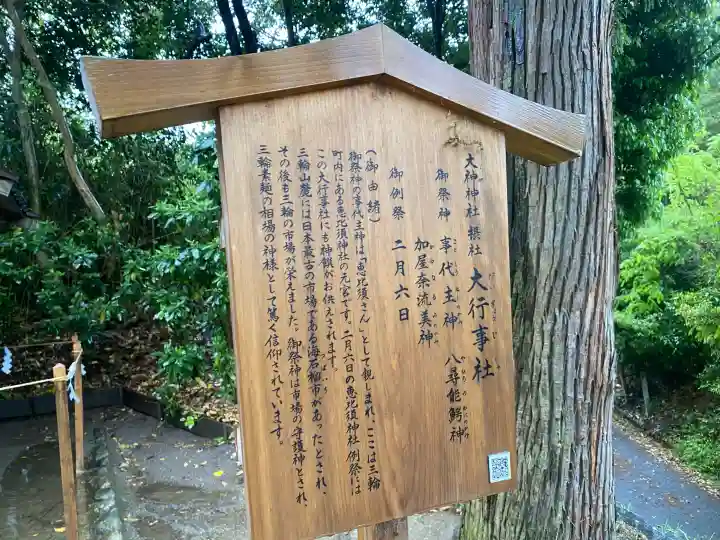 大神神社 摂社 大行事社
だいぎょうじしゃ
御祭神 事代主神 八尋熊鰐神
加屋奈流美神
御例祭 二月六日
(御由緒)
御祭神の事代主神は「恵比須さん」として親しまれ、ここは三輪
町内にある恵比須神社の元宮です。二月六日の恵比須神社例祭には
この大行事社にも神饌がお供えされます。
三輪山麓には日本最古の市場である海石榴市があったとされ、
つばいち
その後も三輪の市場が栄えました。御祭神は市場の守護神とされ、
三輪素麺の相場の神様として篤く信仰されています。